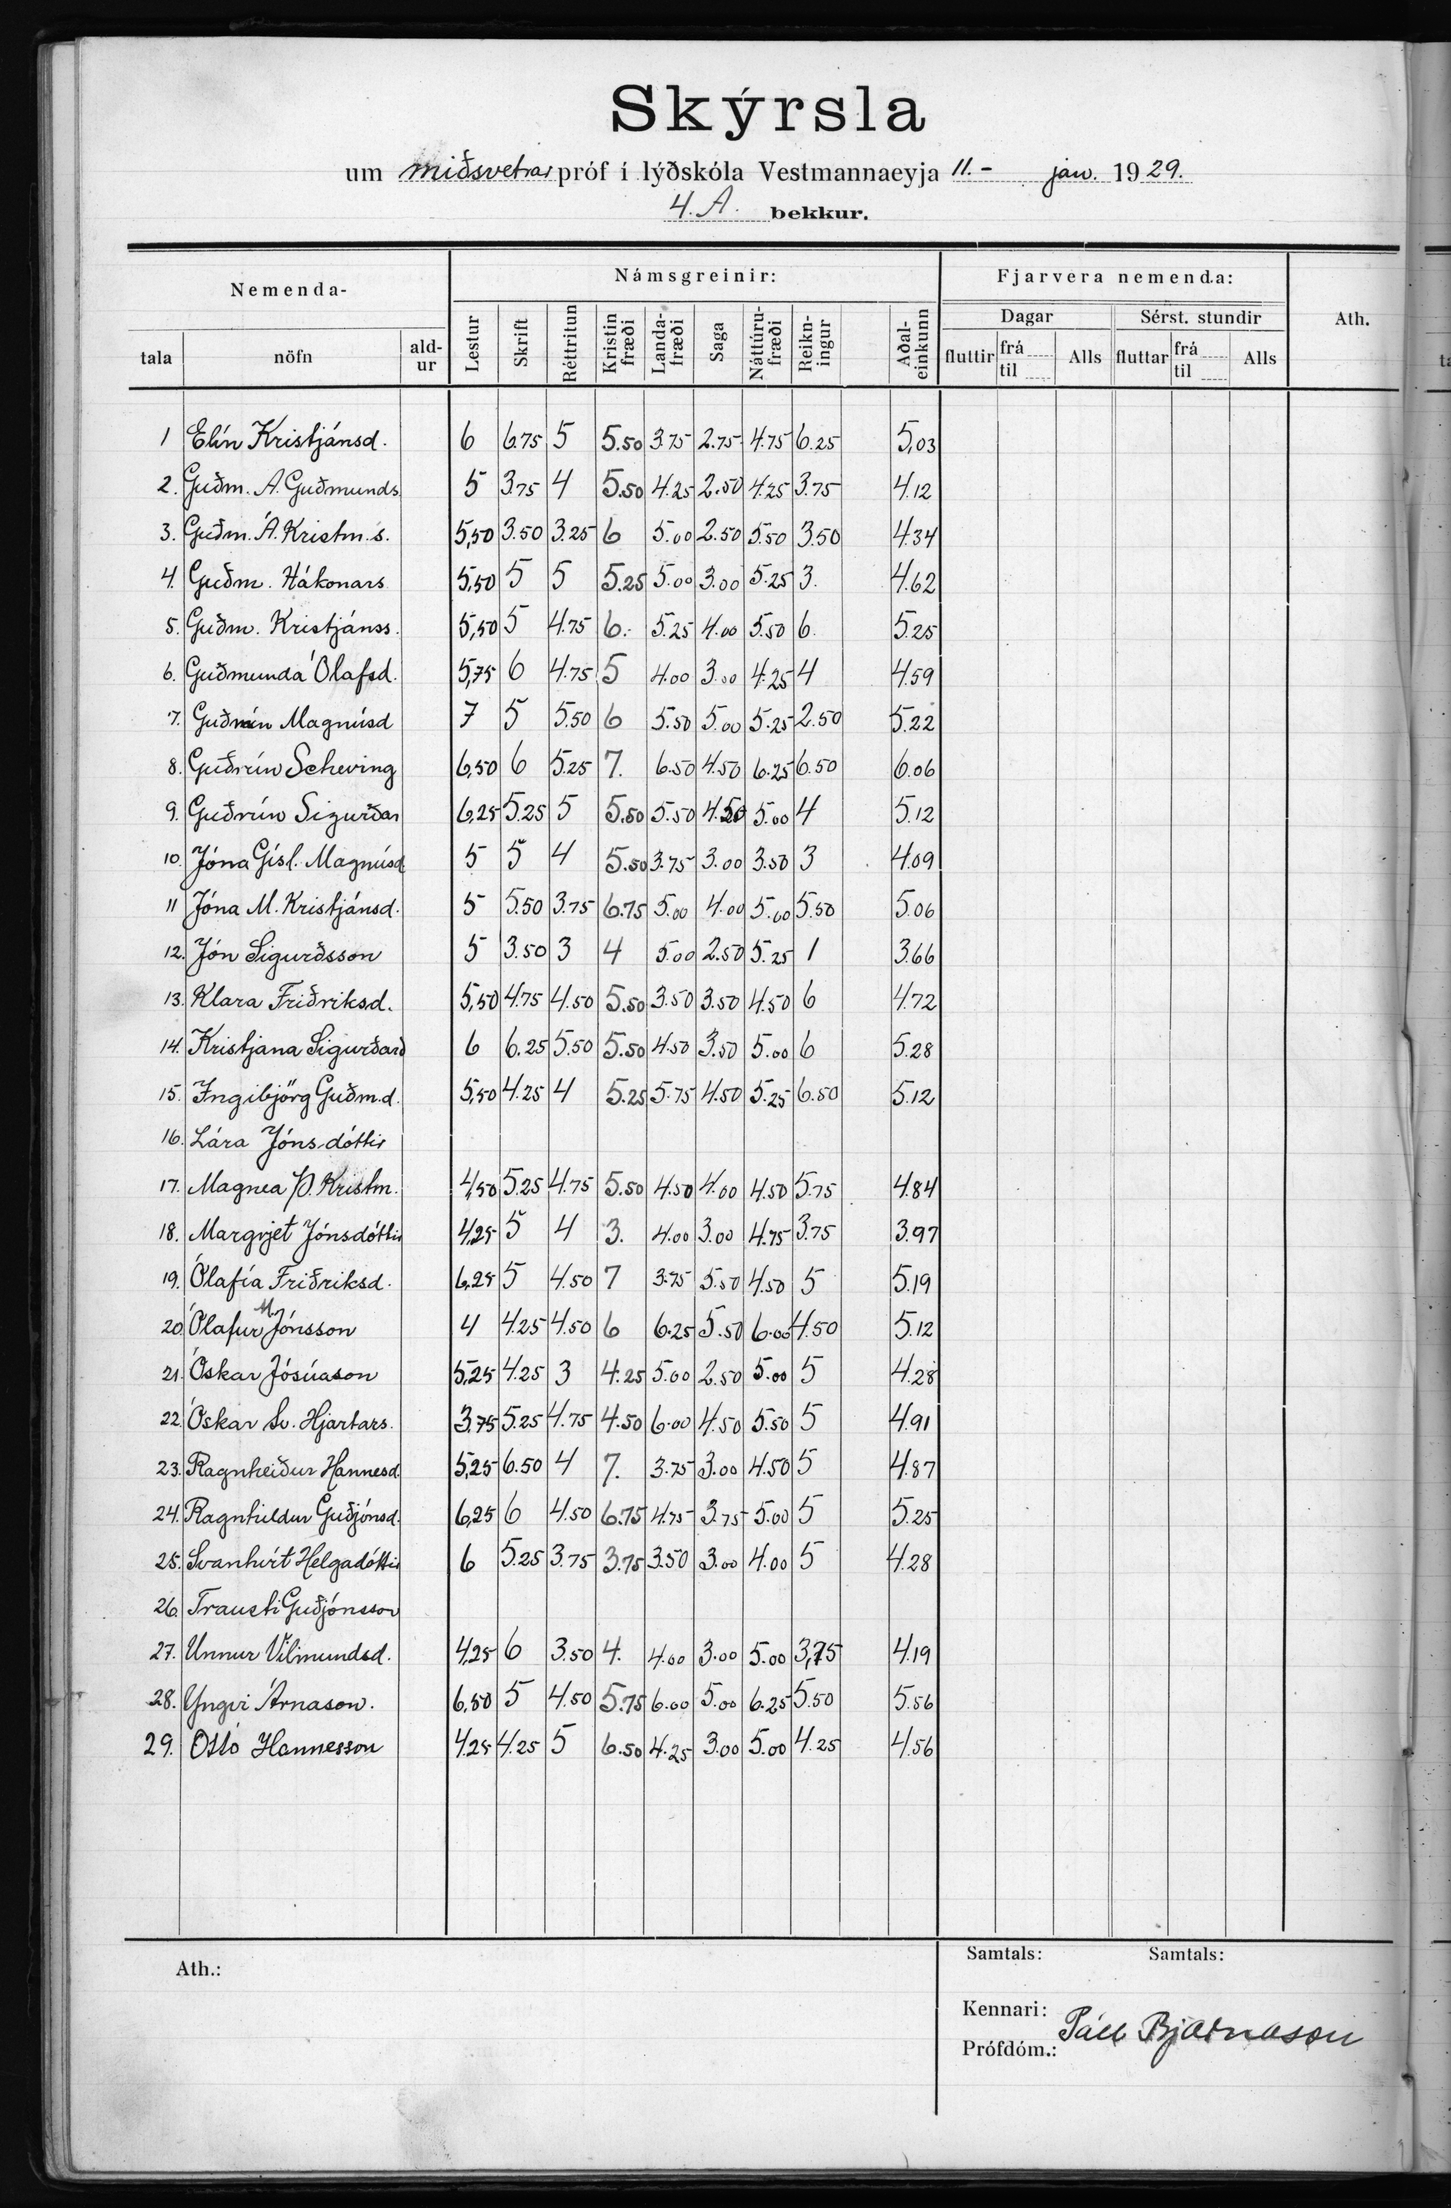 Skýrsla
um miðsvetrar próf í lýðskóla Vestmannaeyja 11.- jan. 1929.
4. A. bekkur.
Nemenda- Námsgreinir: Fjarvera nemenda: Ath.
tala nöfn ald-ur Lestur Skrift Réttritun Kristin fræði Landa-fræði Saga Náttúru-fræði Reikn-ingur Aðal-einkunn Dagar Sérst. stundir
fluttir frá til Alls fluttar frá til Alls
1 Elín Kristjánsd. 6 6.75 5 5.50 3.75 2.75 4.75 6.25 5,03
2. Guðm. A. Guðmunds. 5 3.75 4 5.50 4.25 2.50 4.25 3.75 4.12
3. Guðm. Á. Kristm.s. 5,50 3.50 3.25 6 5.00 2.50 5.50 3.50 4.34
4. Guðm. Hákonars 5,50 5 5 5.25 5.00 3.00 5.25 3. 4.62
5. Guðm. Kristjánss. 5,50 5 4.75 6. 5.25 4.00 5.50 6. 5.25
6. Guðmunda Ólafsd. 5,75 6 4.75 5 4.00 3.00 4.25 4 4.59
7. Guðrún Magnúsd 7 5 5.50 6 5.50 5.00 5.25 2.50 5.22
8. Guðrún Scheving 6,50 6 5.25 7. 6.50 4.50 6.25 6.50 6.06
9. Guðrún Sigurðar 6,25 5.25 5 5.50 5.50 4.50 5.00 4 5.12
10. Jóna Gísl. Magnúsd 5 5 4 5.50 3.75 3.00 3.50 3 4.09
11 Jóna M. Kristjánsd. 5 5.50 3.75 6.75 5.00 4.00 5.00 5.50 5.06
12. Jón Sigurðsson 5 3.50 3 4 5.00 2.50 5.25 1 3.66
13. Klara Friðriksd. 5,50 4.75 4.50 5.50 3.50 3.50 4.50 6 4.72
14. Kristjana Sigurðard 6 6.25 5.50 5.50 4.50 3.50 5.00 6 5.28
15. Ingibjörg Guðm.d. 5,50 4.25 4 5.25 5.75 4.50 5.25 6.50 5.12
16. Lára Jónsdóttir
17. Magnea Þ. Kristm. 4,50 5.25 4.75 5.50 4.50 4.00 4.50 5.75 4.84
18. Margrjet Jónsdóttir 4,25 5 4 3. 4.00 3.00 4.75 3.75 3.97
19. Ólafía Friðriksd. 6,25 5 4.50 7 3.75 5.50 4.50 5 5.19
20. Ólafur M. Jónsson 4 4.25 4.50 6 6.25 5.50 6.00 4.50 5.12
21. Óskar Jósúason 5,25 4.25 3 4.25 5.00 2.50 5.00 5 4.28
22. Óskar Sv. Hjartars. 3.75 5.25 4.75 4.50 6.00 4.50 5.50 5 4.91
23. Ragnheiður Hannesd. 5,25 6.50 4 7. 3.75 3.00 4.50 5 4.87
24. Ragnhildur Guðjónsd. 6,25 6 4.50 6.75 4.75 3.75 5.00 5 5.25
25. Svanhvít Helgadóttir 6 5.25 3.75 3.75 3.50 3.00 4.00 5 4.28
26. Trausti Guðjónsson
27. Unnur Vilmundsd. 4,25 6 3.50 4. 4.00 3.00 5.00 3,75 4.19
28. Yngvi Árnason. 6,50 5 4.50 5.75 6.00 5.00 6.25 5.50 5.56
29. Ottó Hannesson 4.25 4.25 5 6.50 4.25 3.00 5.00 4.25 4.56
Ath.: Samtals: Samtals:
Kennari: Páll Bjarnason
Prófdóm.: